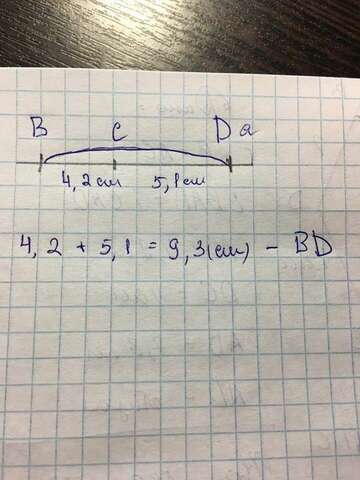 В С D a
4,2 см 5,1 см
4,2 + 5,1 = 9,3(см) - BD